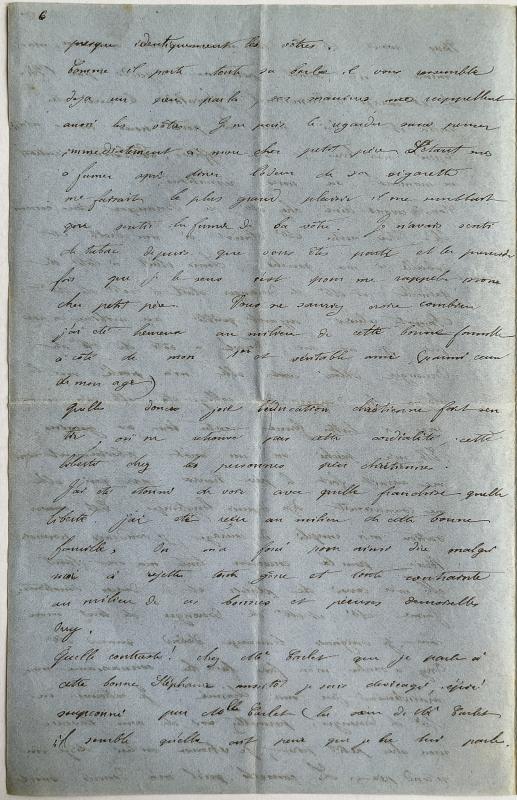 6
presque identiquement les vôtres.
Comme il porte toute sa barbe il vous ressemble
déja un peu ses manières me rappellent
aussi les vôtres. Je ne puis le regarder sans penser
immédiatement à mon cher petit père
à fumer après diner l'odeur de sa cigarette
me faisait le plus grand plaisir il me semblait
que sentir la fumée de la vôtre. Je n'avais senti
de tabac depuis que vous êtes parti et la première
fois que je le sens c'est pour me rappeler mon
cher petit père. Vous ne sauriez croire combien
j'ai été heureux au milieu de cette bonne famille
à côté de mon 1er et véritable ami (parmi ceux
de mon age)
Quelle douce joie l'éducation chrétienne fait sen
tir, on ne trouve pas cette cordialité cette
liberté chez les personnes peu chrétiennes.
J'ai été étonné de voir avec quelle franchise quelle
liberté j'ai été reçu au milieu de cette bonne
famille, on m'a forcé pour ainsi dire malgré
moi à rejetter toute gêne et toute contrainte
au milieu de ces bonnes et pieuses demoiselles
Quel contraste! chez que je parle à
cette bonne Stéphanie
soupçonné par Melle (la sœur de
il semble quelle ont peur que je lui parle.